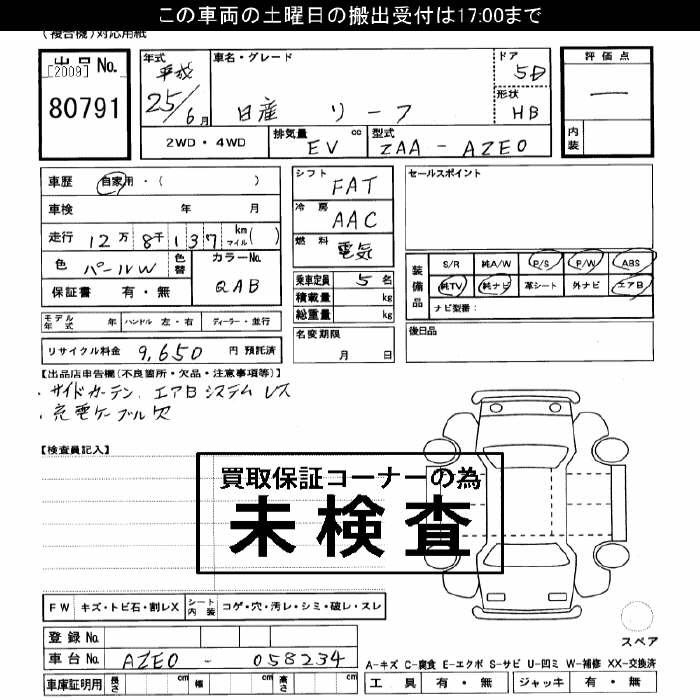 この車両の土曜日の搬出受付は17:00まで
(複合機)対応用紙
出品 No.
[2009]
80791
年式 平成
25/6月
車名・グレード
日産 リーフ
ドア 5D
形状 HB
評価点
—
内装
2WD・4WD
排気量 cc
EV
型式
ZAA-AZE0
車歴 自家用・( )
車検 年 月
走行 12万8千137 km マイル( )
色 パールW
色替
カラーNo.
QAB
保証書 有・無
モデル年式 年 ハンドル 左・右 ディーラー・並行
リサイクル料金 9,650 円 預託済
シフト FAT
冷房 AAC
燃料 電気
乗車定員 5名
積載量 kg
総重量 kg
名変期限
月 日
セールスポイント
装備品
S/R 純A/W P/S P/W ABS
純TV 純ナビ 革シート 外ナビ エアB
ナビ型番:
後日品
【出品店申告欄(不良箇所・欠品・注意事項等)】
・サイドカーテン、エアBシステムレス
・充電ケーブル欠
【検査員記入】
買取保証コーナーの為
未検査
FW キズ・トビ石・割レX
シート内装 コゲ・穴・汚レ・シミ・破レ・スレ
登録No.
車台No. AZE0-058234
車庫証明用 長さ cm 幅 cm 高さ cm
スペア
A-キズ C-腐食 E-エクボ S-サビ U-凹ミ W-補修 XX-交換済
工具 有・無 ジャッキ 有・無